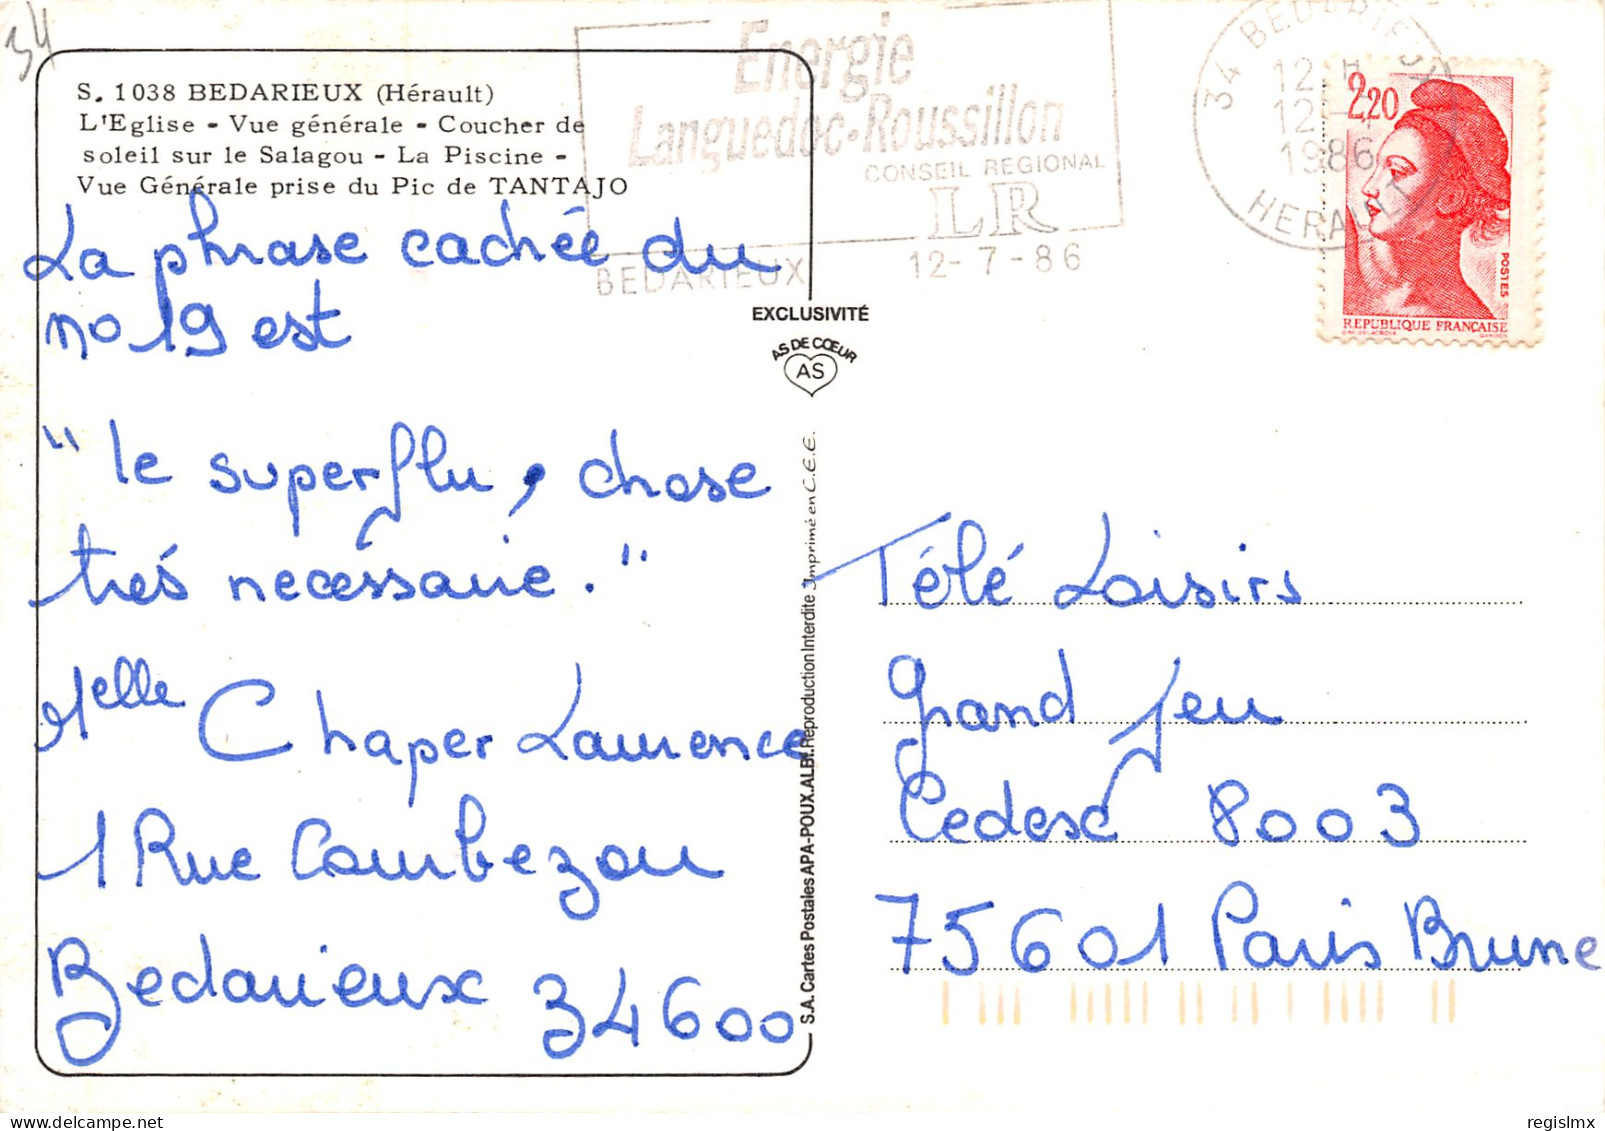 34
S. 1038 BEDARIEUX (Hérault)
L'Eglise - Vue générale - Coucher de
soleil sur le Salagou - La Piscine -
Vue Générale prise du Pic de TANTAJO
La phrase cachée du
no 19 est
"le superflu, chose
très necessaire."
Melle Chaper Laurence
1 Rue Courbezou
Bedarieux 34600
Energie
Languedoc-Roussillon
CONSEIL REGIONAL
LR
BEDARIEUX 12-7-86
34 BEDARIEUX
12 H
12-7
1986
HERAULT
2,20
POSTES
REPUBLIQUE FRANÇAISE
EXCLUSIVITÉ
AS DE CŒUR
AS
S.A. Cartes Postales APA-POUX.ALBI.Reproduction Interdite Imprimé en C.E.E.
Télé Loisirs
Grand Jeu
Cedex 8003
75601 Paris Brune
regislmx